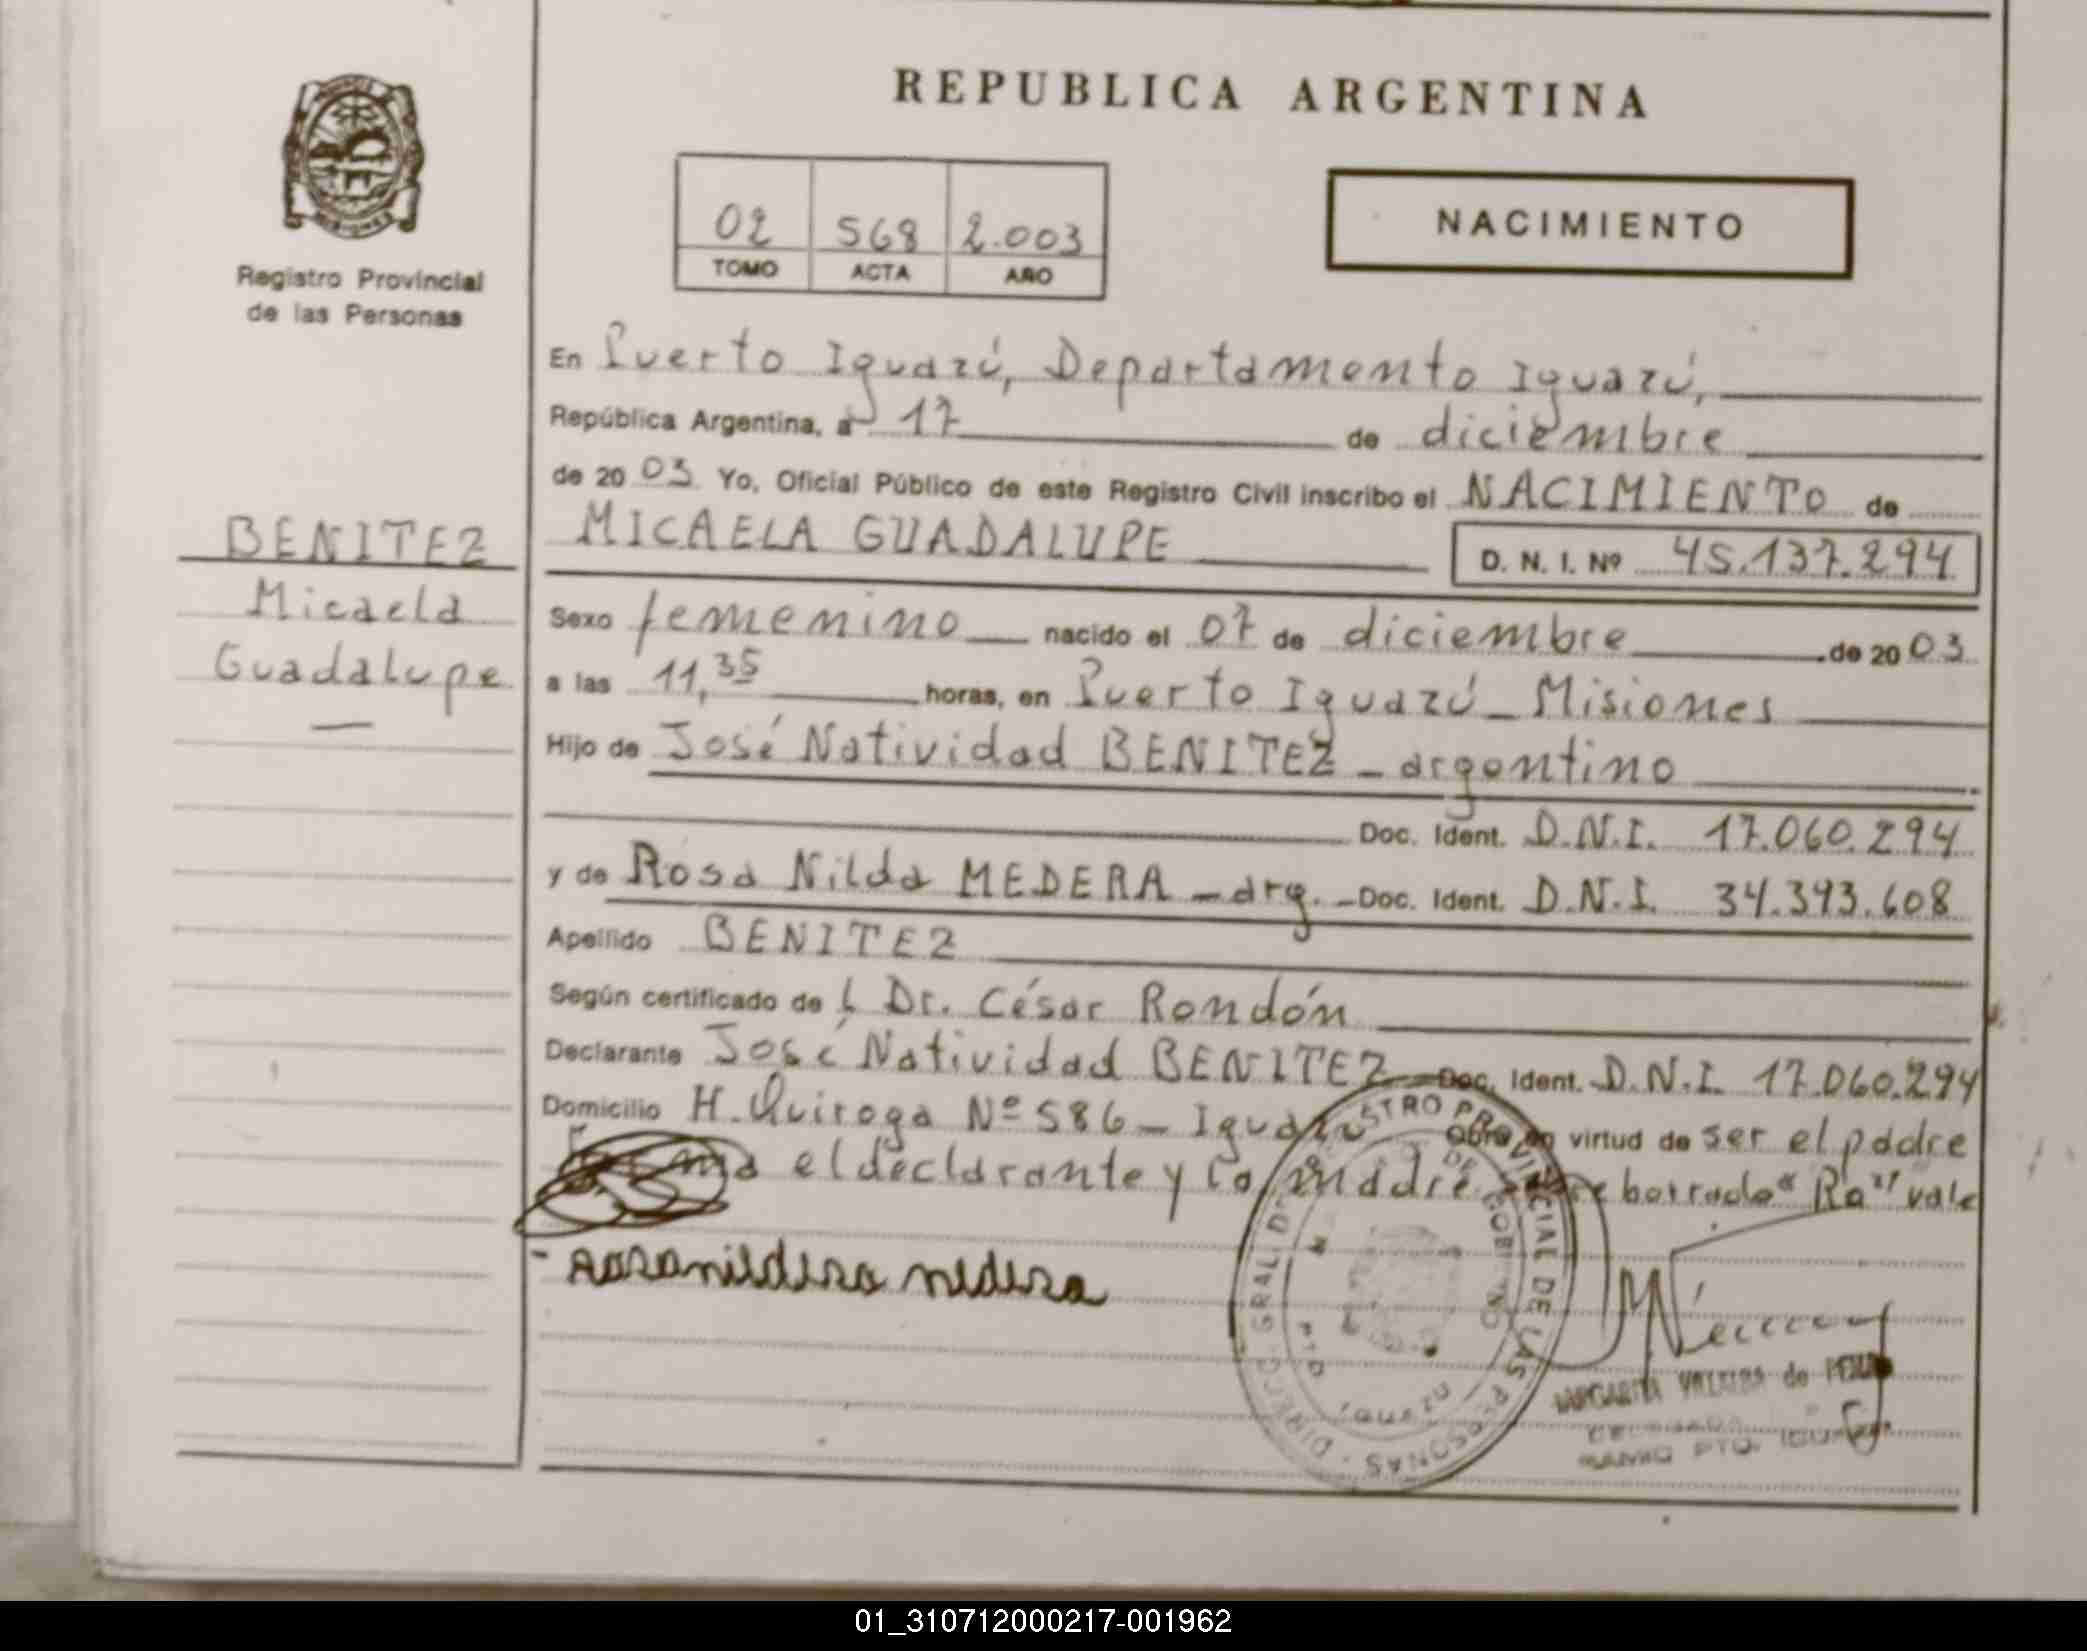 REPUBLICA ARGENTINA
02 568 2.003
TOMO ACTA AÑO
NACIMIENTO
Registro Provincial
de las Personas
BENITEZ
Micaela
Guadalupe
En Puerto Iguazú, Departamento Iguazú,
República Argentina, a 17 de diciembre
de 2003 Yo, Oficial Público de este Registro Civil inscribo el NACIMIENTO de
MICAELA GUADALUPE D. N. I. Nº 45.137.294
Sexo femenino nacido el 07 de diciembre de 2003
a las 11,35 horas, en Puerto Iguazú - Misiones
Hijo de José Natividad BENITEZ - argentino
Doc. Ident. D.N.I. 17.060.294
y de Rosa Nilda MEDERA - arg. - Doc. Ident. D.N.I. 34.393.608
Apellido BENITEZ
Según certificado de l Dr. César Rondón
Declarante José Natividad BENITEZ Doc. Ident. D.N.I. 17.060.294
Domicilio H. Quiroga Nº 586 - Iguazú Obra en virtud de ser el padre
el declarante y la madre borrado "Ra" vale
DIREC. GRAL. DE REGISTRO PROVINCIAL DE LAS PERSONAS
MARGARITA de
PTO.
01_310712000217-001962